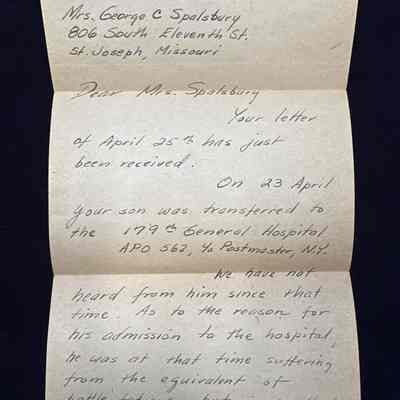 Mrs. George C Spalsbury
806 South Eleventh St.
St. Joseph, Missouri
Dear Mrs. Spalsbury
Your letter
of April 25th has just
been received.
On 23 April
your son was transferred to
the 179th General Hospital
APO 562, c/o Postmaster, N.Y.
We have not
heard from him since that
time. As to the reason for
his admission to the hospital,
he was at that time suffering
from the equivalent of